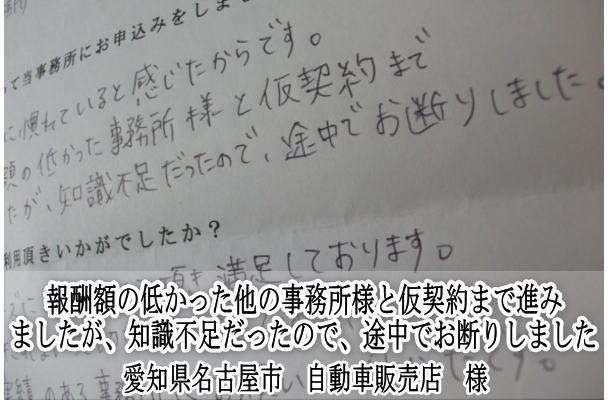 って当事務所にお申込みをしま
に慣れていると感じたからです。
の低かった事務所様と仮契約まで
たが、知識不足だったので、途中でお断りしました。
利用頂きいかがでしたか？
満足しております。
報酬額の低かった他の事務所様と仮契約まで進み
ましたが、知識不足だったので、途中でお断りしました
愛知県名古屋市　自動車販売店　様